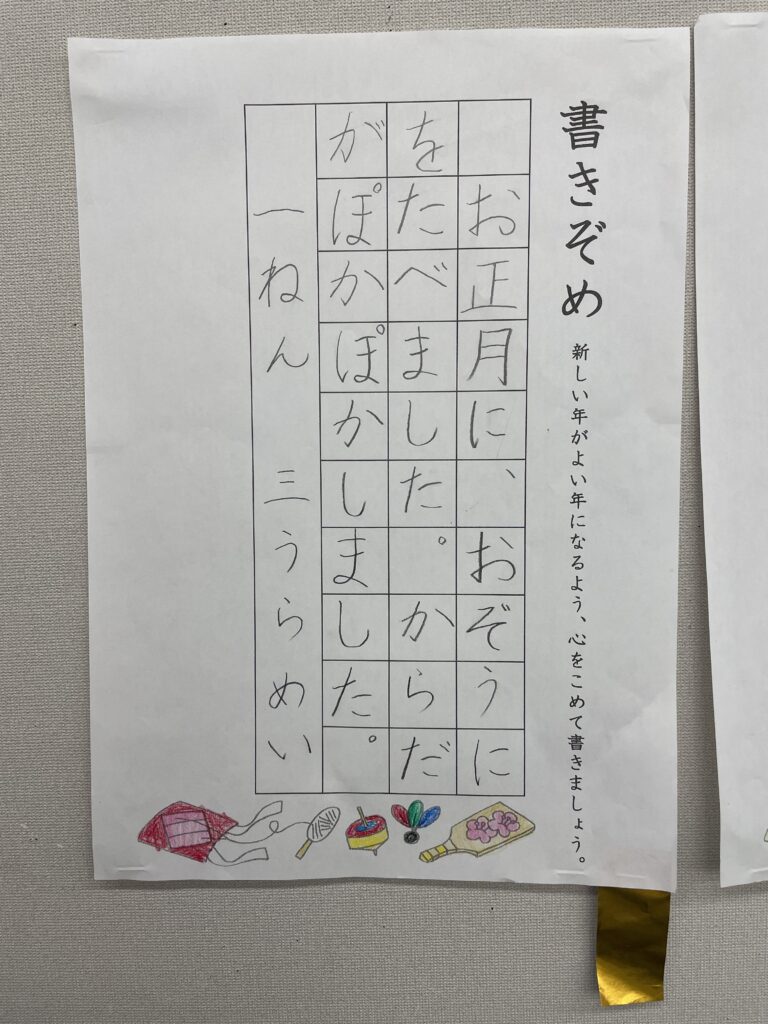 書きぞめ
新しい年がよい年になるよう、心をこめて書きましょう。
お正月に、おぞうに
をたべました。からだ
がぽかぽかしました。
一ねん 三うらめい